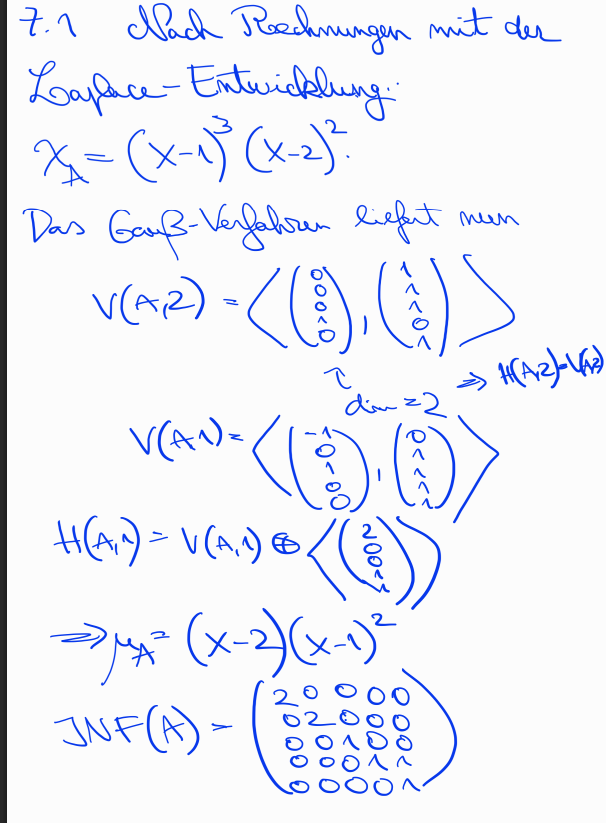 7.1 Nach Rechnungen mit der
Laplace-Entwicklung:
χ_A = (x-1)^3 (x-2)^2.
Das Gauß-Verfahren liefert nun
V(A,2) = ⟨ (0 0 0 1 0), (1 1 1 0 1) ⟩
↑ dim = 2 ⇒ H(A,2)=V(A,2)
V(A,1) = ⟨ (-1 0 1 0 0), (0 1 1 1 1) ⟩
H(A,1) = V(A,1) ⊕ ⟨ (2 0 0 1 1) ⟩
⇒ μ_A = (x-2)(x-1)^2
JNF(A) = (
2 0 0 0 0
0 2 0 0 0
0 0 1 0 0
0 0 0 1 1
0 0 0 0 1
)